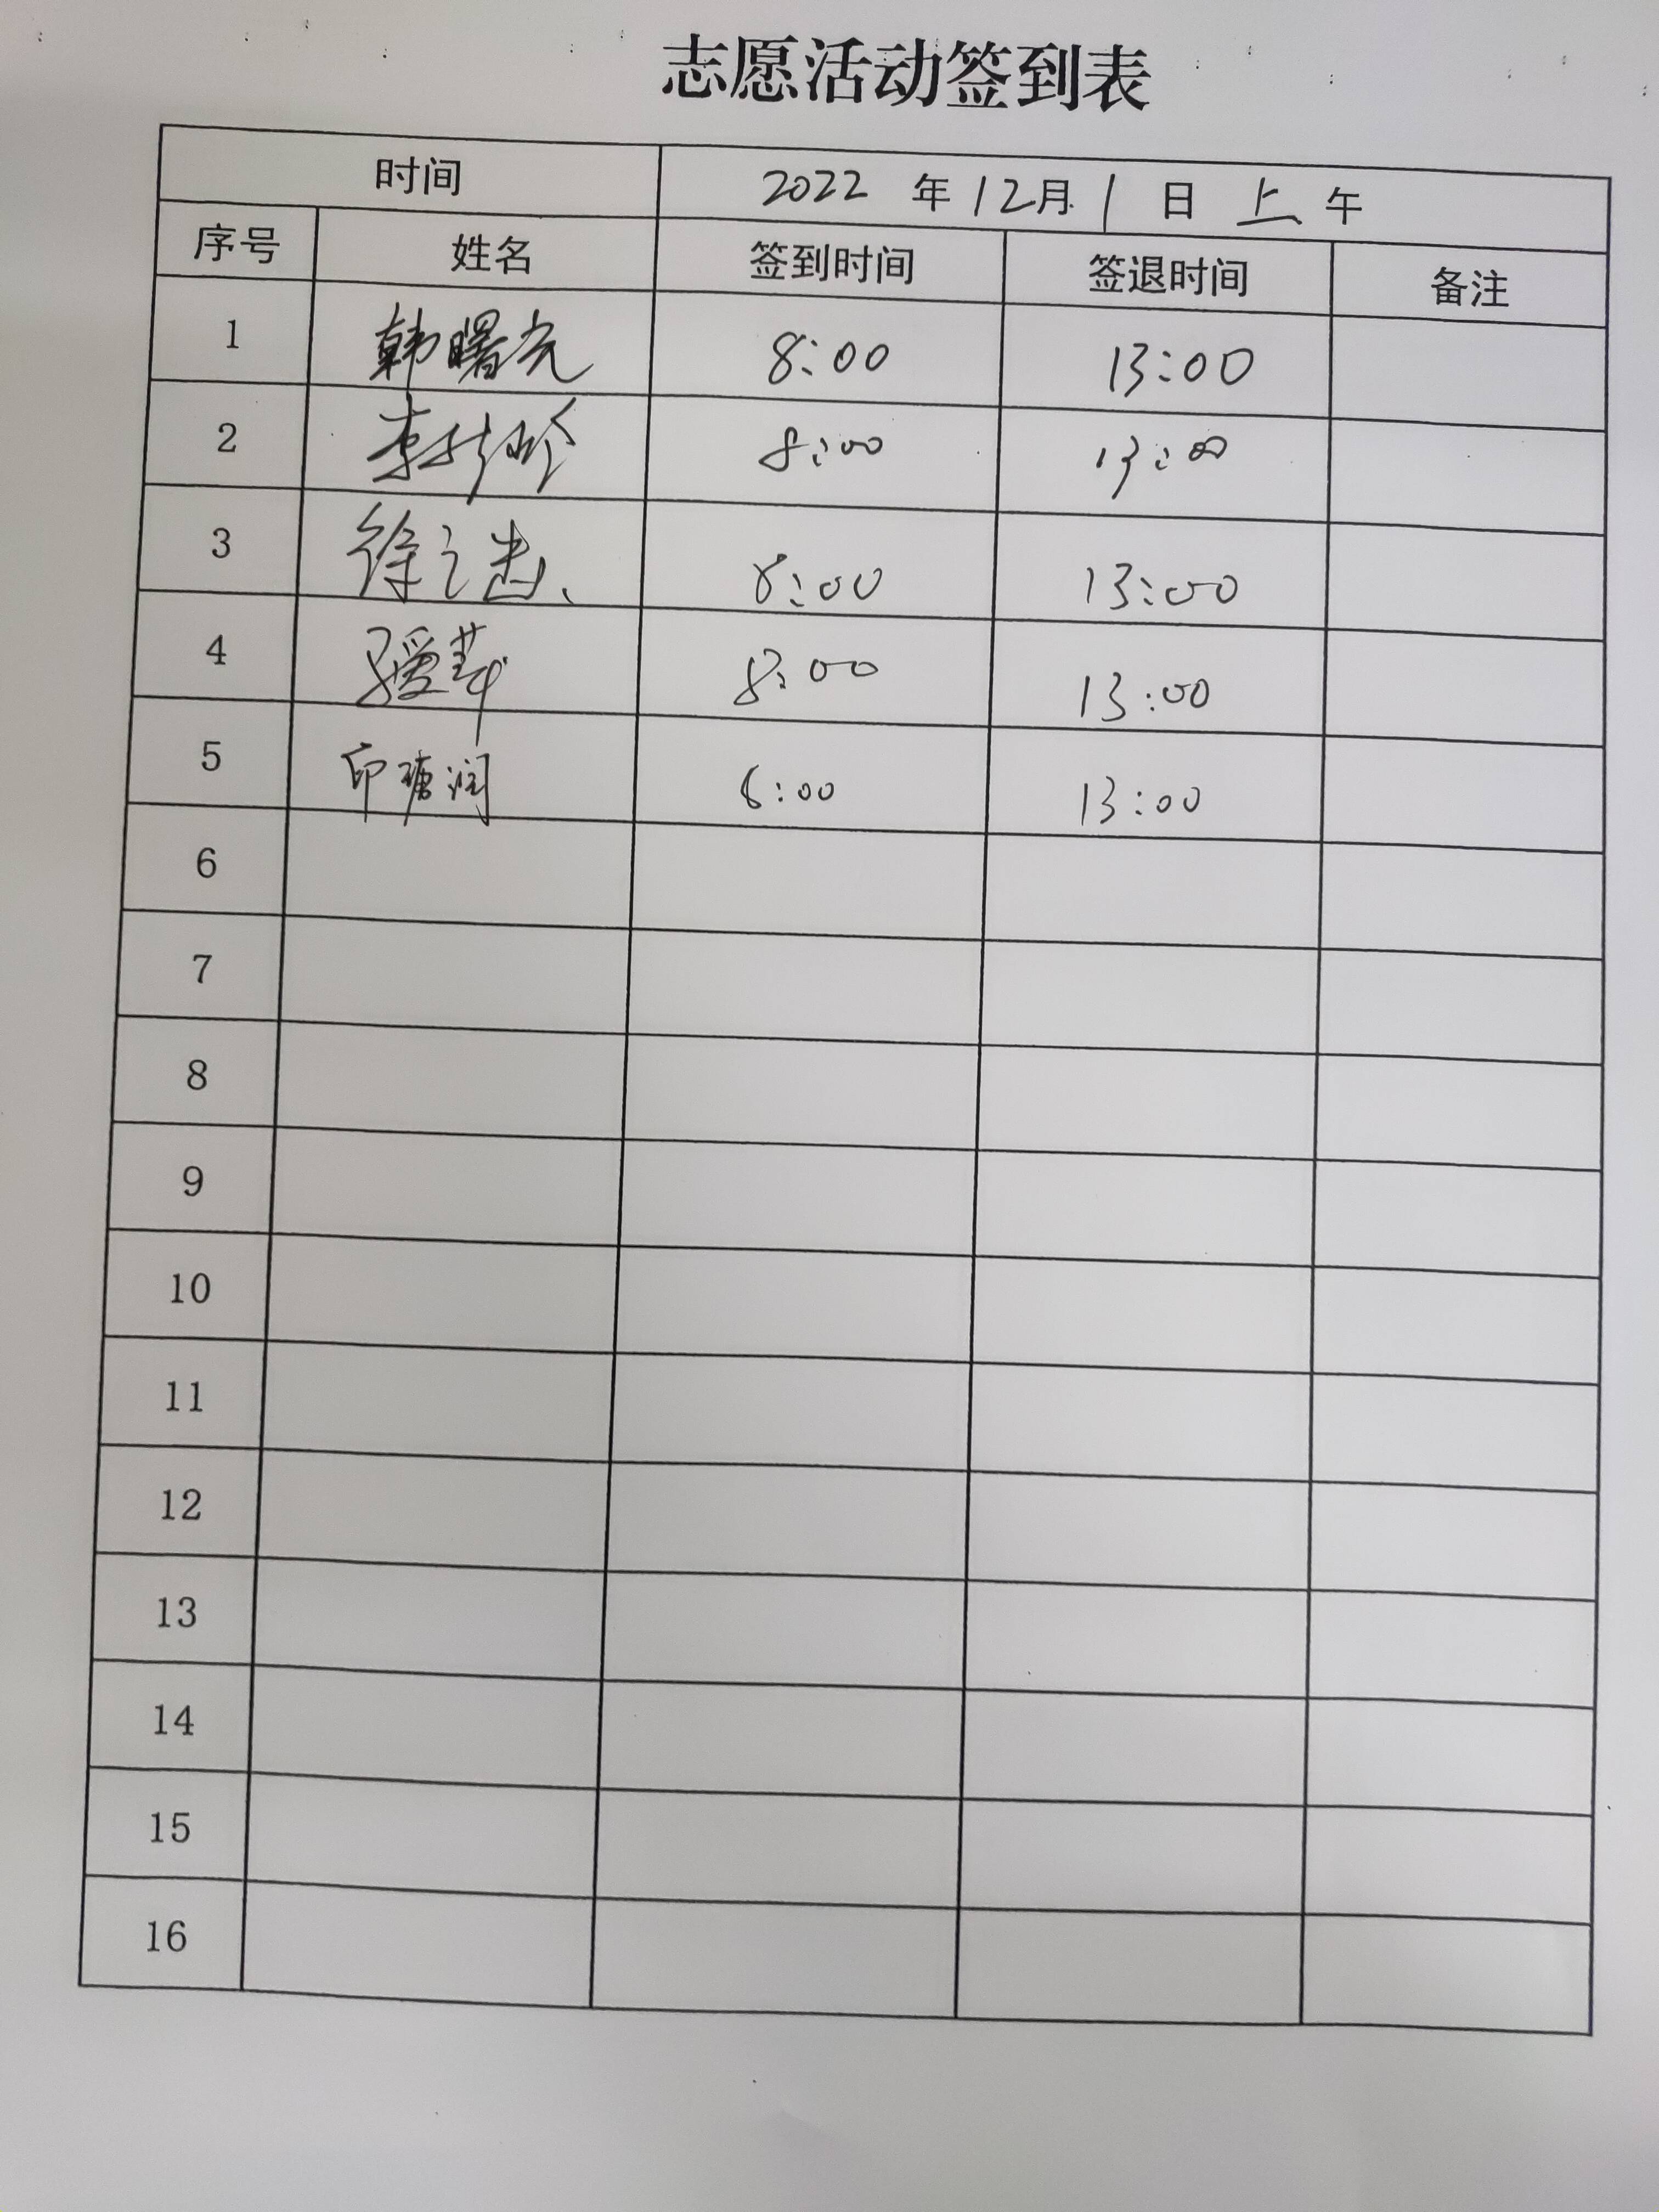 志愿活动签到表
时间 2022 年 12月 1 日 上 午
序号 姓名 签到时间 签退时间 备注
1 韩曙光 8:00 13:00
2 8:00 13:00
3 徐 8:00 13:00
4 8:00 13:00
5 印瑭润 8:00 13:00
6
7
8
9
10
11
12
13
14
15
16